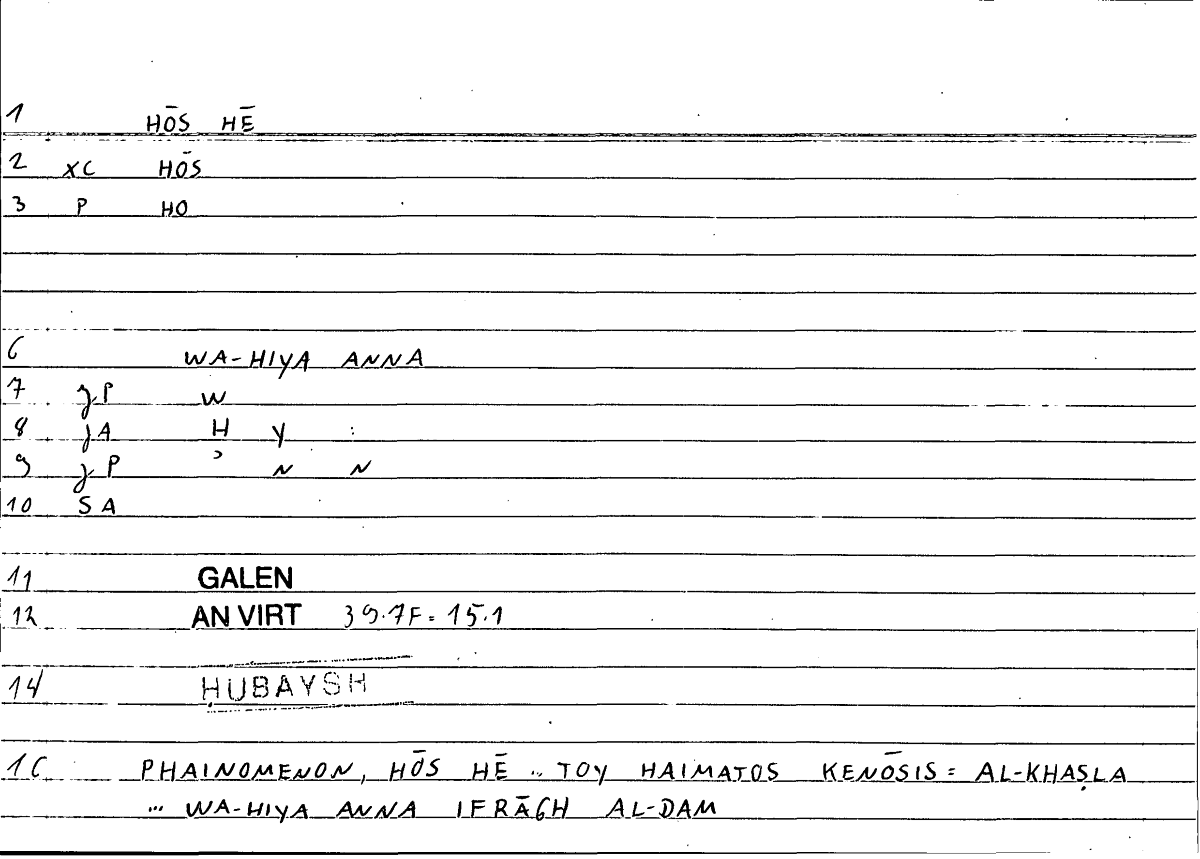 1 HŌS HĒ
2 XC HŌS
3 P HO
6 WA-HIYA ANNA
7 jP W
8 jA H Y :
9 jP ʾ N N
10 SA
11 GALEN
12 AN VIRT 39.7F = 15.1
14 ḤUBAYSH
16 PHAINOMENON, HŌS HĒ .. TOY HAIMATOS KENŌSIS = AL-KHAṢLA
... WA-HIYA ANNA IFRĀGH AL-DAM